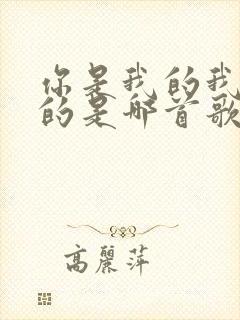 你是我的我
的是哪首歌
高麗萍